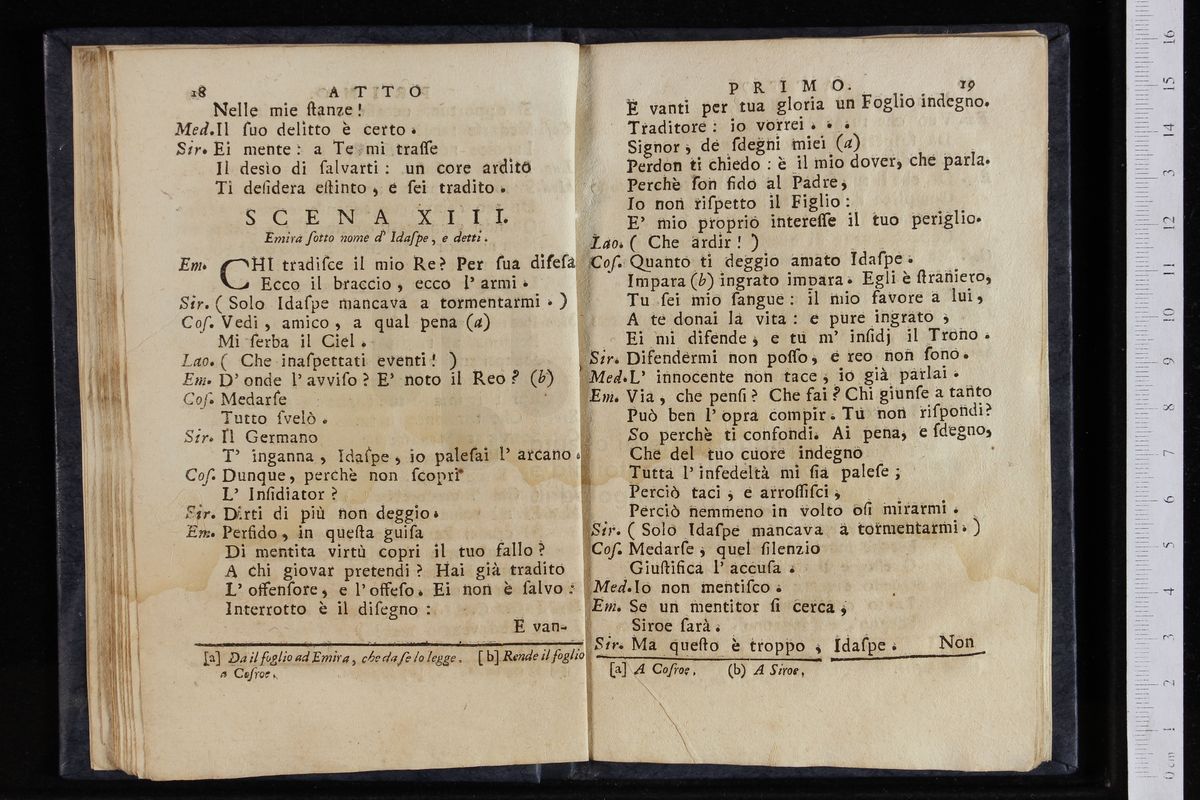 18 ATTO
Nelle mie ſtanze!
Med. Il ſuo delitto è certo.
Sir. Ei mente: a Te mi traſſe
Il desìo di ſalvarti: un core ardito
Ti deſidera eſtinto, e ſei tradito.
SCENA XIII.
Emira ſotto nome d' Idaſpe, e detti.
Em. CHI tradiſce il mio Re? Per ſua difeſa
Ecco il braccio, ecco l' armi.
Sir. (Solo Idaſpe mancava a tormentarmi.)
Coſ. Vedi, amico, a qual pena (a)
Mi ſerba il Ciel.
Lao. ( Che inaſpettati eventi! )
Em. D' onde l' avviſo? E' noto il Reo? (b)
Coſ. Medarſe
Tutto ſvelò.
Sir. Il Germano
T' inganna, Idaſpe, io paleſai l' arcano.
Coſ. Dunque, perchè non ſcopri
L' Inſidiator?
Sir. Dirti di più non deggio.
Em. Perfido, in queſta guiſa
Di mentita virtù copri il tuo fallo?
A chi giovar pretendi? Hai già tradito
L' offenſore, e l' offeſo. Ei non è ſalvo:
Interrotto è il diſegno:
E van-
[a] Da il foglio ad Emira, che da ſe lo legge. [b] Rende il foglio
a Coſroe.
PRIMO. 19
E vanti per tua gloria un Foglio indegno.
Traditore: io vorrei...
Signor, de ſdegni miei (a)
Perdon ti chiedo: è il mio dover, che parla.
Perchè ſon fido al Padre,
Io non riſpetto il Figlio:
E' mio proprio intereſſe il tuo periglio.
Lao. ( Che ardir! )
Coſ. Quanto ti deggio amato Idaſpe.
Impara (b) ingrato impara. Egli è ſtraniero,
Tu ſei mio ſangue: il mio favore a lui,
A te donai la vita: e pure ingrato,
Ei mi difende, e tu m' inſidj il Trono.
Sir. Difendermi non poſſo, e reo non ſono.
Med. L' innocente non tace, io già parlai.
Em. Via, che penſi? Che fai? Chi giunſe a tanto
Può ben l' opra compir. Tu non riſpondi?
So perchè ti confondi. Ai pena, e ſdegno,
Che del tuo cuore indegno
Tutta l' infedeltà mi ſia paleſe;
Perciò taci, e arroſſiſci,
Perciò nemmeno in volto oſi mirarmi.
Sir. ( Solo Idaſpe mancava a tormentarmi.)
Coſ. Medarſe, quel ſilenzio
Giuſtifica l' accuſa.
Med. Io non mentiſco.
Em. Se un mentitor ſi cerca,
Siroe ſarà.
Sir. Ma queſto è troppo, Idaſpe.
Non
[a] A Coſroe. (b) A Siroe.
0 cm 1 2 3 4 5 6 7 8 9 10 11 12 13 14 15 16